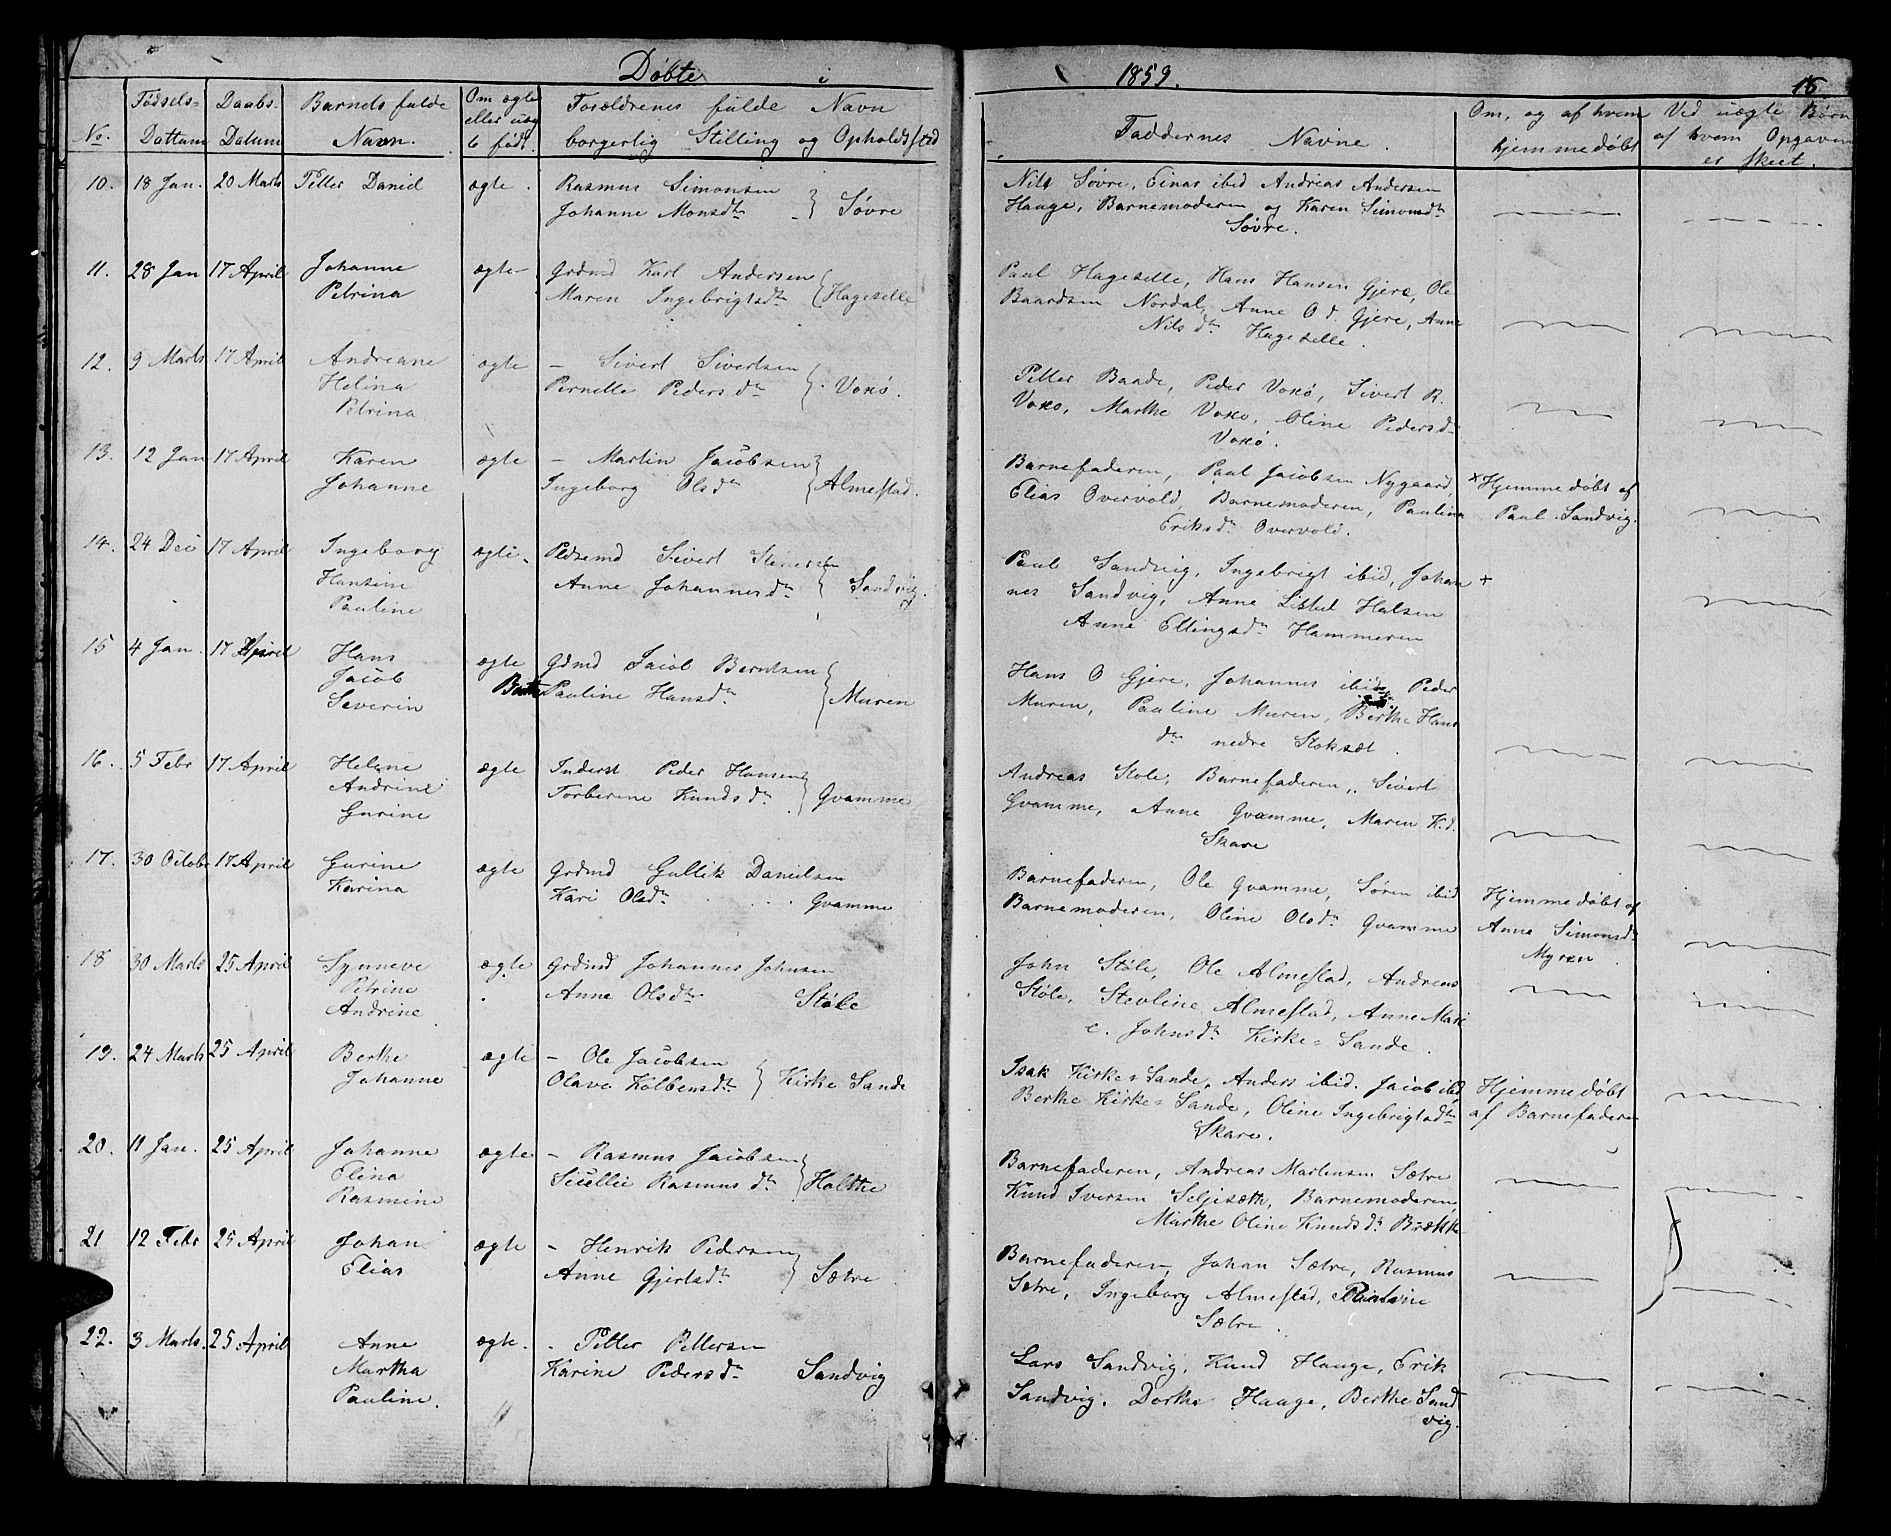 Døbte i 1859. 15
No. Fødsels- Dattum Daabs. Datum Barnets fulde Navn. Om ægte eller uæg te født. Forældrenes fulde Navn borgerlig Stilling og Opholdssted Faddernes Navne. Om, og af hvem hjemmedøbt Ved uægte Børn af hvem Opgaven er skeet.
10. 18 Jan. 20 Marts Petter Daniel ægte. Rasmus Simonsen
Johanne Monsdtr } Søvre
Nils Søvre, Einar ibid Andreas Andersen
Hauge, Barnemoderen og Karen Simonsdtr
Søvre.
11. 28 Jan 17 April Johanne
Petrina
ægte- Grdmd Karl Andersen
Maren Ingebrigtsdtr { Hageselle
Paul Hageselle, Hans Hansen Gjere, Ole
Baardsen Nordal, Anne O d. Gjere, Anne
Nils dtr Hageselle.
12. 9 Marts 17 April Andreane
Helina
Petrina
ægte - Sivert Sivertsen
Pernelle Peders dtr { Voxø.
Petter Baade, Peder Voxø, Sivert R.
Voxo, Marthe Voxo, Oline Pedersdtr
Voxø.
13. 12 Jan 17 April Karen
Johanne
ægte - Martin Jacobsen
Ingeborg Olsdtr } Almestad.
Barnefaderen, Paul Jacobsen Nygaard,
Elias Overvold, Barnemoderen, Paulina
Eriksdtr Overvold.
x Hjemmedøbt af
Paul Sandvig.
14. 24 Dec 17 April Ingeborg
Hansine
Pauline
ægte. Pldsemd Sivert Stenersen
Anne Johannesdtr } Sandvig.
Paul Sandvig, Ingebrigt ibid, Johan +
nes Sandvig, Anne Lisbet Halsen
Anne Ellingsdtr Hammeren
15 4 Jan. 17 April Hans
Jacob
Severin
ægte Gdmd Jacob Berntsen
Pauline Hansdtr { Muren
Hans O Gjere, Johannes ibid, Peder
Muren, Pauline Muren, Berthe Hans
dtr nedre Stoksæt.
16. 5 Febr 17 April Helene
Andrine
Gurine
ægte Inderst Peder Hansen
Torberene Knudsdtr } Gvamme
Andreas Støle, Barnefaderen, Sivert
Gvamme, Anne Gvamme, Maren K.d.
Skare
17. 30 Octobr 17 April Gurine
Karina
ægte Grdmd Gullik Danielsen
Kari Olsdtr . . . Gvamme
Barnefaderen, Ole Gvamme, Søren ibid
Barnemoderen, Oline Olsdtr Gvamme
Hjemmedøbt af
Anne Simonsdtr
Myren
18 30 Marts 25 April Synneve
Petrine
Andrine
ægte Grdmd Johannes Johnsen
Anne Olsdtr Støle
John Støle, Ole Almestad, Andreas
Støle, Stevline Almestad, Anne Mari
e. Johnsdtr Kirke-Sande.
19. 24 Marts 25 April Berthe
Johanne
ægte - Ole Jacobsen
Olave Kolbensdtr } Kirke Sande
Isak Kirke-Sande, Anders ibid. Jacob ibid
Berthe Kirke-Sande, Oline Ingebrigtsdtr
Skare.
Hjemmedøbt
af Barnefaderen
20. 11 Jan. 25 April Johanne
Elina
Rasmine
ægte - Rasmus Jacobsen
Rasmus dtr } Holthe
Barnefaderen, Andreas Martensen Sætre
Knud Iversen Seljesæth, Barnemoderen,
Marthe Oline Knudsdtr Brække
21 12 Febr 25 April Johan
Elias
ægte - Henrik Pedersen
Anne Gjertsdtr } Sætre
Barnefaderen, Johan Sætre, Rasmus
Sætre, Ingeborg Almestad,
Sætre.
22. 3 Marts. 25 April Anne
Martha
Pauline.
ægte. - Petter Pettersen
Karine Pedersdtr Sandvig
Lars Sandvig, Knud Hauge, Erik
Sandvig. Dorthe Hauge, Berthe Sand
vig.